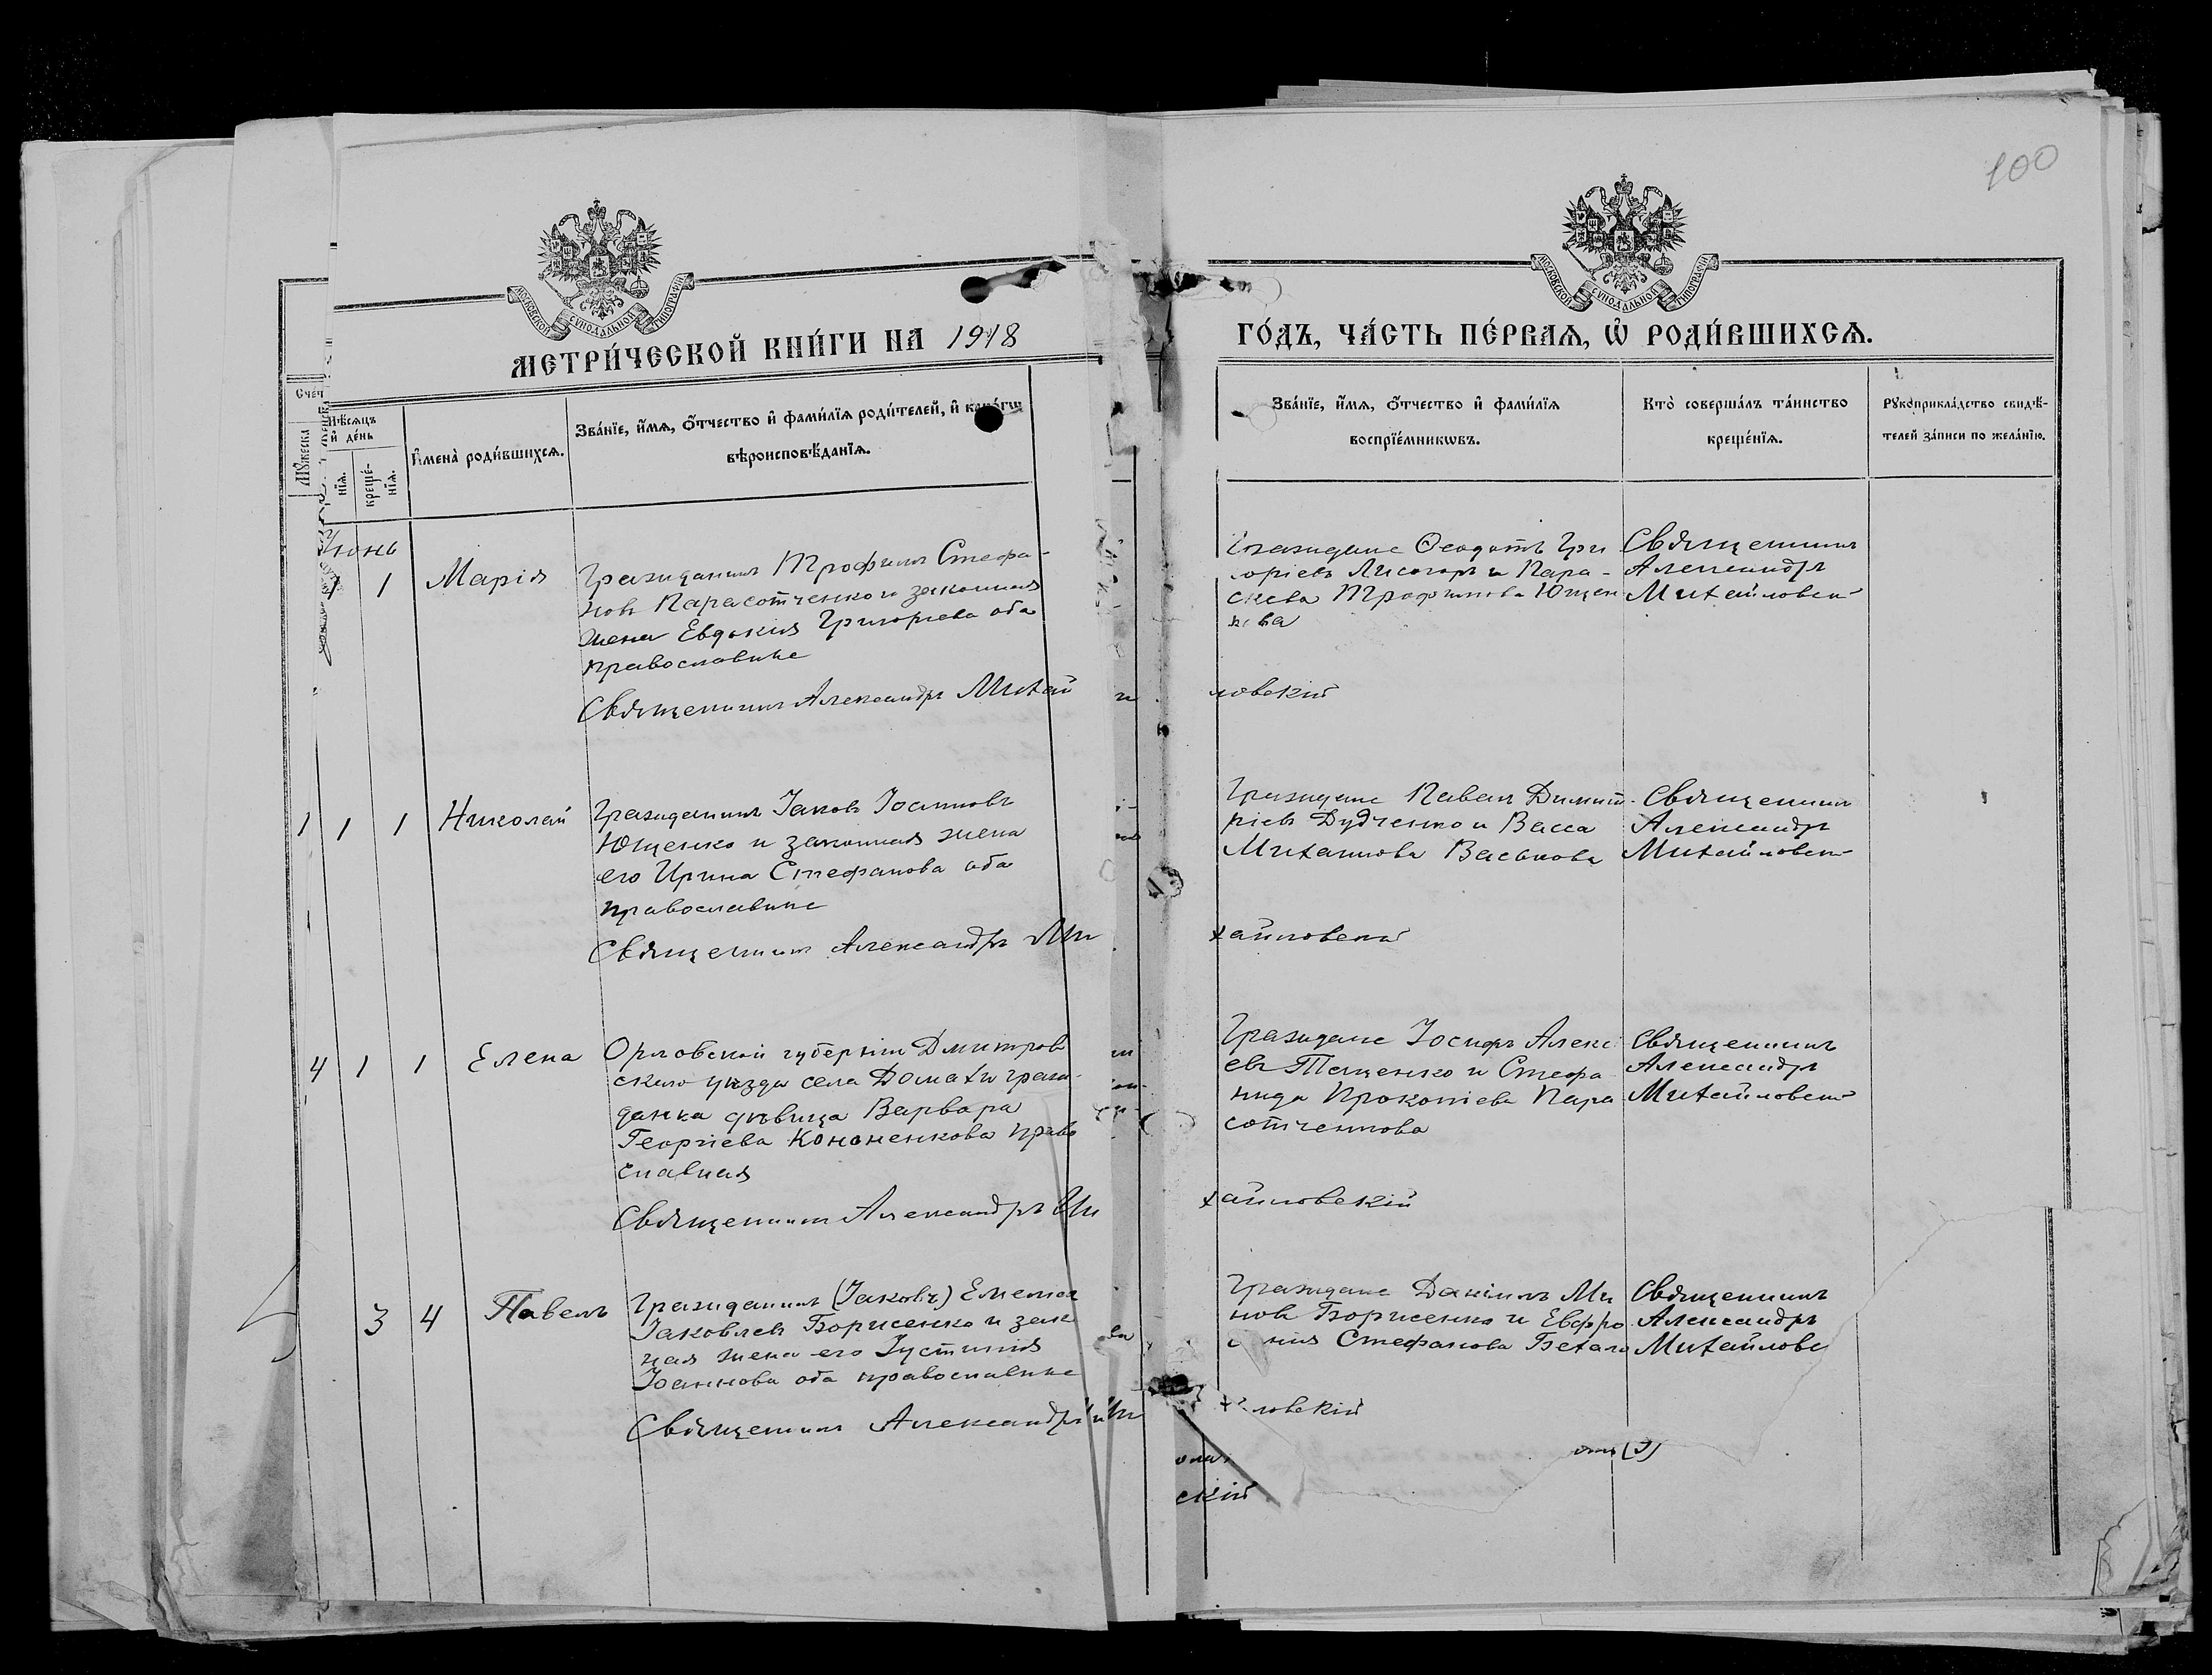 100
МОСКОВСКОЙ СѴНОДАЛЬНОЙ ТИПОГРАФІИ
МОСКОВСКОЙ СѴНОДАЛЬНОЙ ТИПОГРАФІИ
МЕТРИ́ЧЕСКОЙ КНИ́ГИ НА 1918
ГО́ДЪ, ЧА́СТЬ ПЕ́РВАѦ, Ѡ҆ РОДИ́ВШИХСѦ.
Счет
Мꙋжеска
Мѣсѧцъ и҆ де́нь
нїѧ.
креще́-
нїѧ.
И҆мена̀ роди́вшихсѧ.
Зва́нїе, и҆́мѧ, ѻ҆́тчество и҆ фами́лїѧ роди́телей, и҆
вѣроисповѣ́данїѧ.
Зва́нїе, и҆́мѧ, ѻ҆́тчество и҆ фами́лїѧ
воспрїе́мникѡвъ.
Кто̀ соверша́лъ та́инство
креще́нїѧ.
Рꙋкоприкла́дство свидѣ́-
телей за́писи по жела́нїю.
Іюнь
1 1 Марія
Гражданинъ Трофимъ Стефа-
новъ Парасотченко и законная
жена Евдокия Григориева оба
православные
Священникъ Александръ Михай
ловский
Граждане Ѳеодотъ Гри
горіевъ Лисогоръ и Пара-
скева Трофимова Ющен
кова
Священникъ
Александръ
Михайловск
1 1 1 Николай
Гражданинъ Іаковъ Іоанновъ
Ющенко и законная жена
его Ирина Стефанова оба
православные
Священникъ Александръ Ми
хайловский
Граждане Павелъ Димит
ріевъ Дудченко и Васса
Михаилова Васькова
Священникъ
Александръ
Михайловск
4 1 1 Елена
Орловской губерніи Дмитров
скаго уѣзда села Домахи граж-
данка дѣвица Варвара
Георгіева Кононенкова право
славная
Священникъ Александръ Ми
хайловскій
Граждане Іосифъ Алекс
евъ Тещенко и Стефа
нида Прокопіева Пара
сотченкова
Священникъ
Александръ
Михайловск
3 4 Павелъ
Гражданинъ (Іаковъ) Емельян
Іаковлевъ Борисенко и зак
ная жена его Іустинія
Іоаннова оба православные
Священникъ Александръ Ми
ловскій
Граждане Даніилъ Ми
новъ Борисенко и Евфро
нія Стефанова Бехало
Священникъ
Александръ
Михайлове
скій